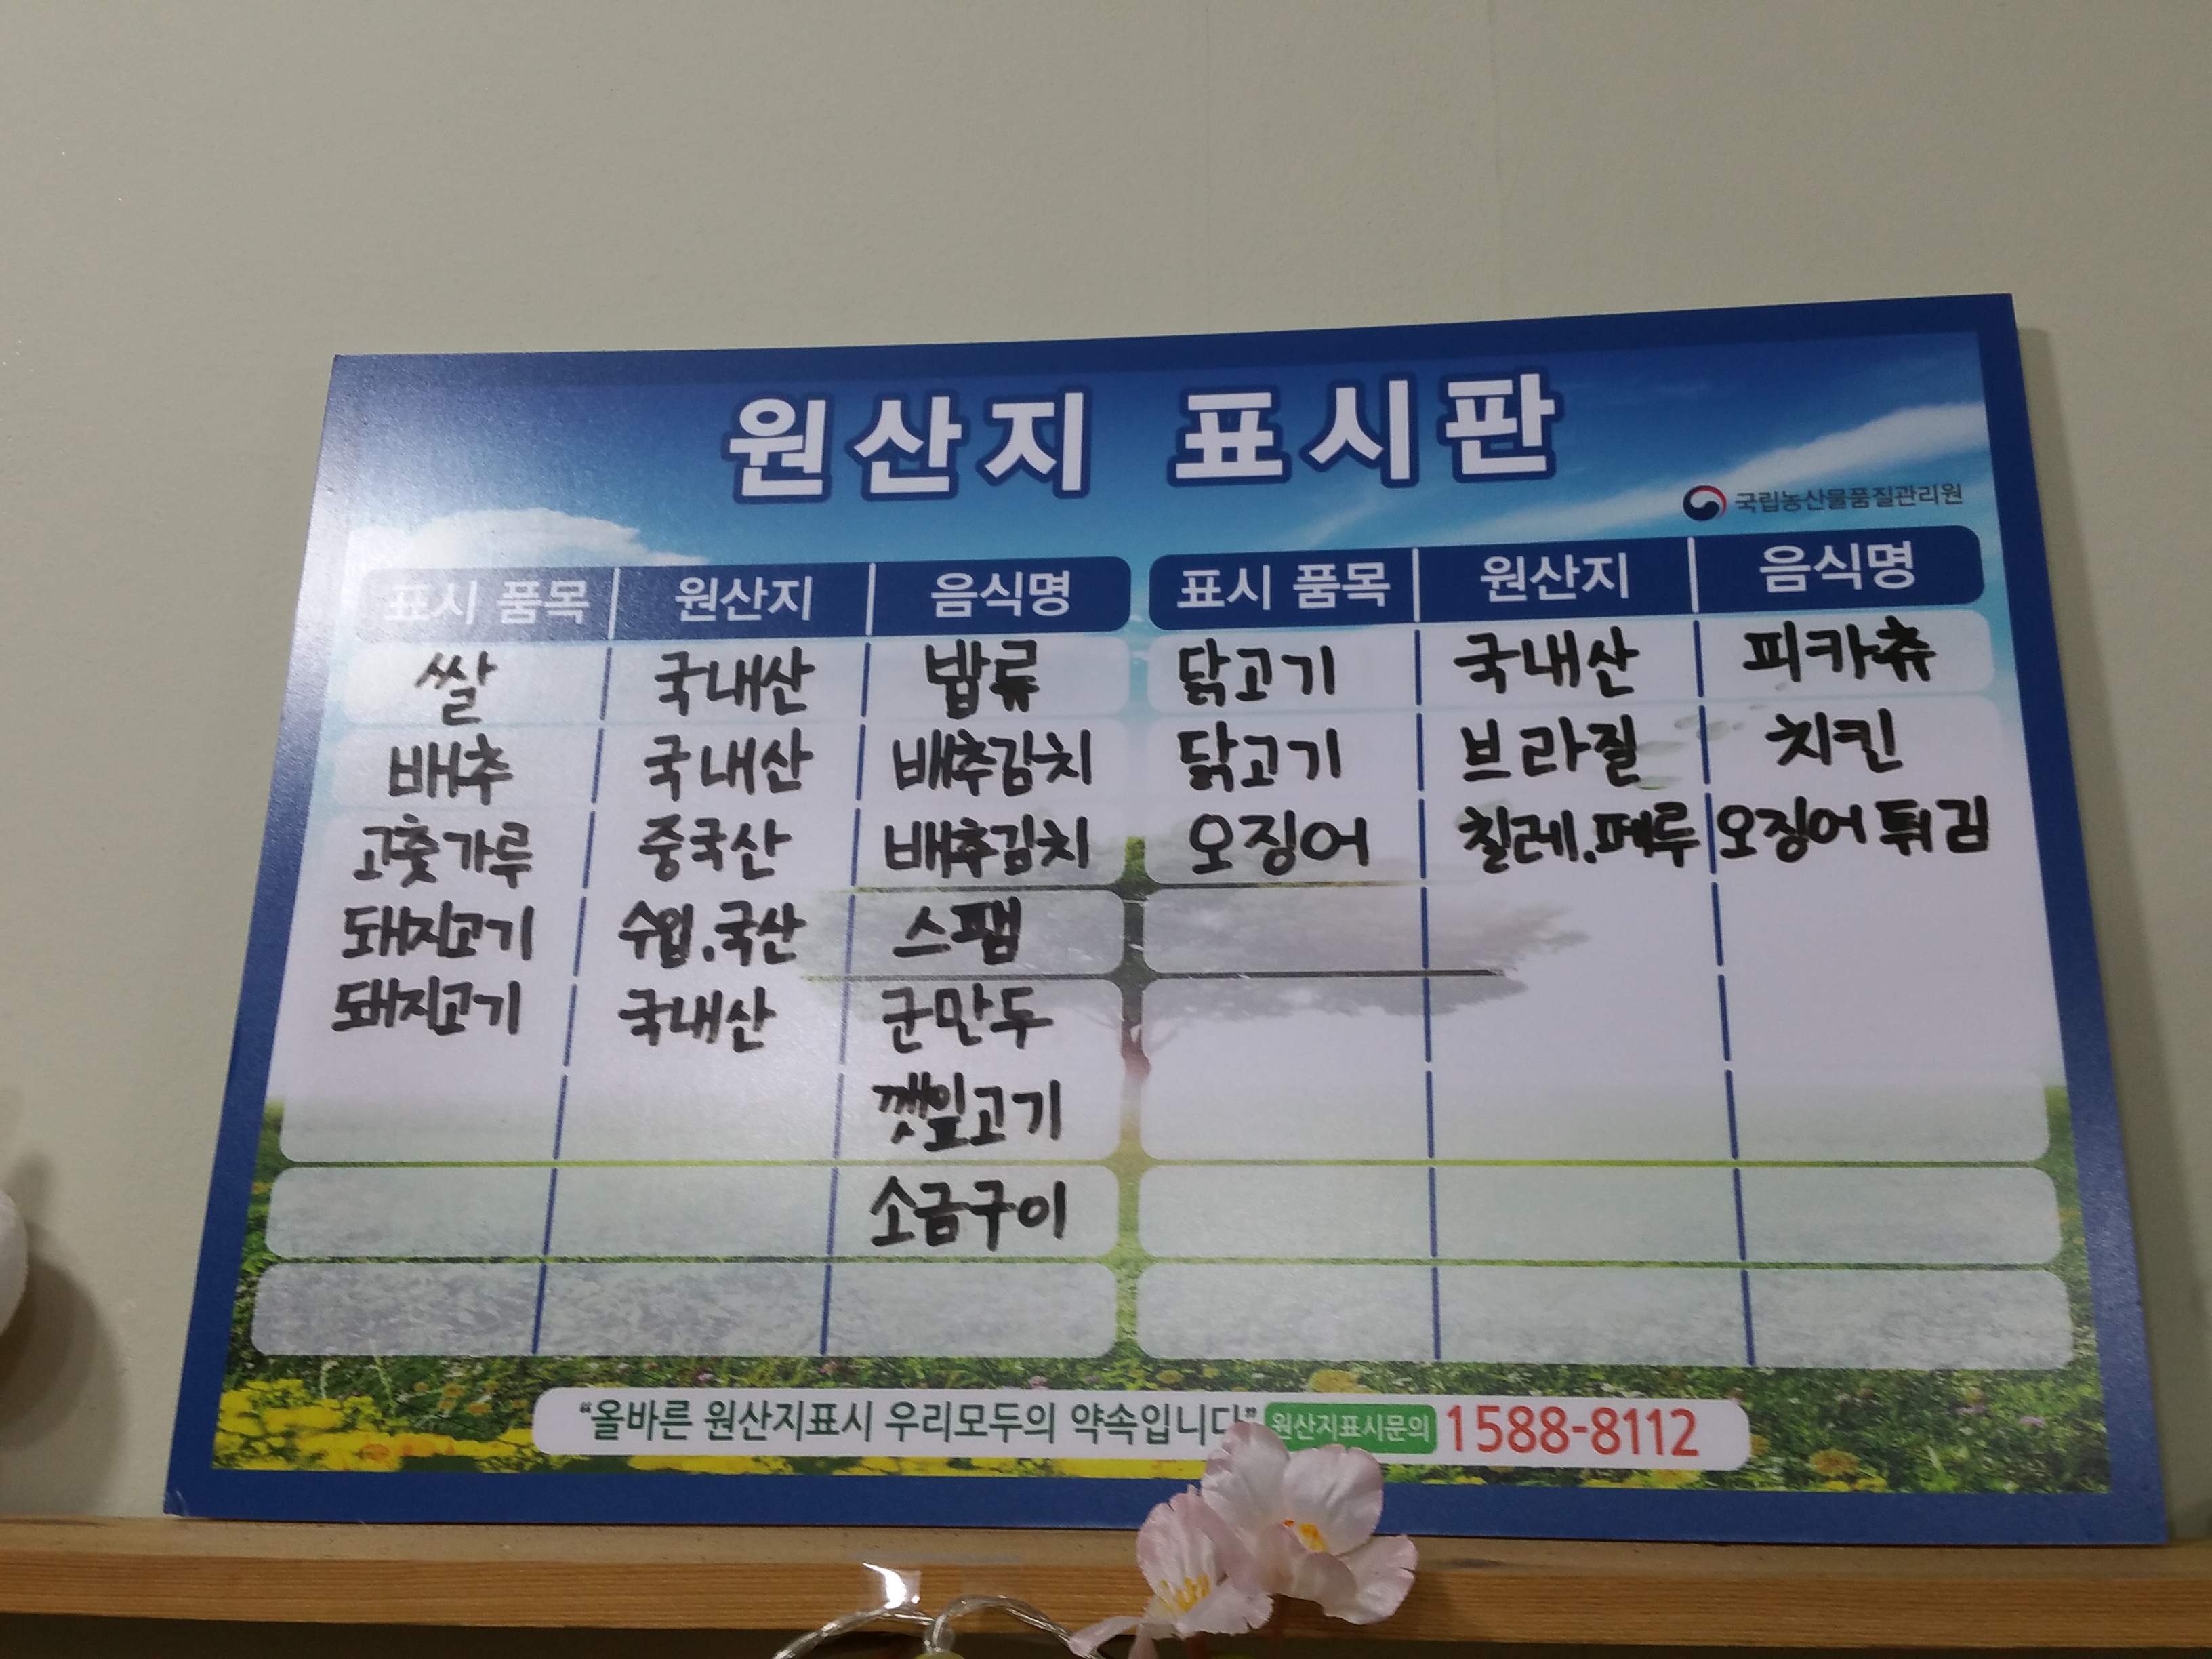 원산지 표시판
국립농산물품질관리원
표시 품목 원산지 음식명 표시 품목 원산지 음식명
쌀 국내산 밥류 닭고기 국내산 피카츄
배추 국내산 배추김치 닭고기 브라질 치킨
고춧가루 중국산 배추김치 오징어 칠레.페루 오징어튀김
돼지고기 수입.국산 스팸
돼지고기 국내산 군만두
깻잎고기
소금구이
"올바른 원산지표시 우리모두의 약속입니다" 원산지표시문의 1588-8112